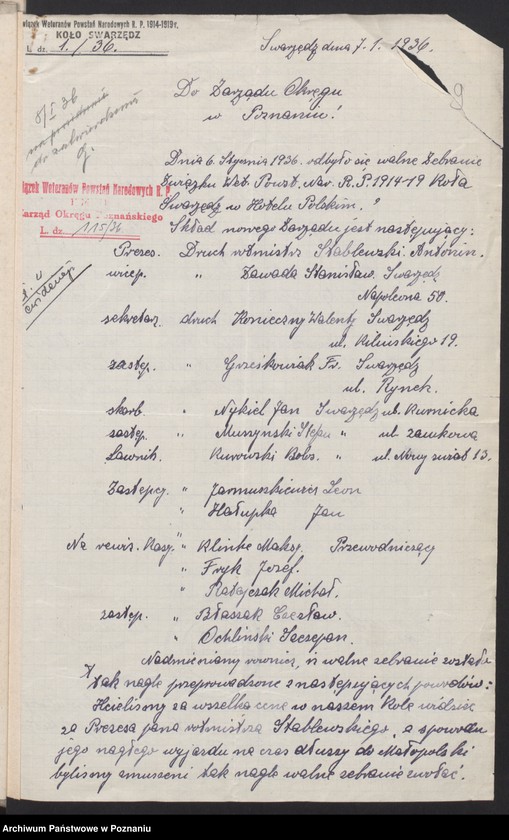 Związek Weteranów Powstań Narodowych R. P. 1914-1919 r.
KOŁO SWARZĘDZ
L. dz. 1./36.
Swarzędz dnia 7.1.1936.
9
Do Zarządu Okręgu
w Poznaniu!
8/I 36
do zatwierdzenia
Związek Weteranów Powstań Narodowych R. P.
Zarząd Okręgu Poznańskiego
L. dz. 115/36
Dnia 6. Stycznia 1936. odbyło się walne Zebranie
Związku Wet. Powst. Nar. R. P. 1914-19 Koła
Swarzędz w Hotelu Polskim.
Skład nowego Zarządu jest następujący:
Prezes. Druch rotmistrz Stablewski Antonin.
wicep. " Zawada Stanisław. Swarzędz
Napoleona 50.
ewidencji
sekretarz. druch Konieczny Walenty Swarzędz
ul. Kilińskiego 19.
zastęp. " Grześkowiak Fr. Swarzędz
ul. Rynek.
skarb. " Nykiel Jan Swarzędz ul. Kurnicka
zastęp. " Muszynski Szczepan " ul. zamkowa
Ławnik. Kurowski Boles. " ul. Nowy świat 13.
Zastępcy " Jarmuszkiewicz Leon
" Hałupka Jan
Na rewiz. Kasy. " Klinke Maks. Przewodniczący
" Fryk Jozef.
" Ratajczak Michał.
zastęp. " Błaszak Czesław.
" Ochliński Szczepan.
Nadmieniany rownież, iż walne zebranie zostało
tak nagle przeprowadzone z następujących powodów:
Hcielismy za wszelka cene w naszem Kole widzieć
za Prezesa pana rotmistrza Stablewskiego, a spowodu
jego nagłego wyjazdu na czas dłuzszy do Małopolski
bylismy zmuszeni tak nagle walne zebranie zwołać.
Archiwum Państwowe w Poznaniu